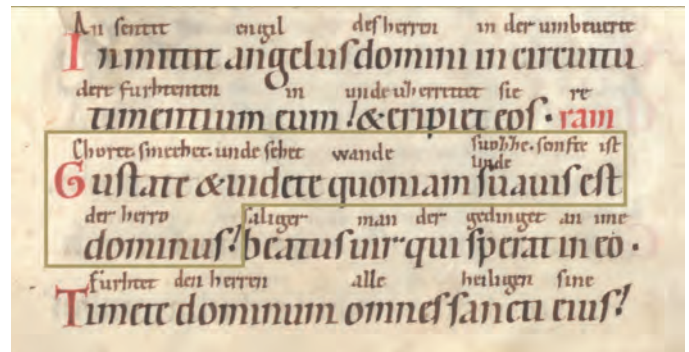 An sentit engil des herren in der umbeuerte
Inmittit angeluſ domini in circuitu
dere furhtenten in unde uberrettet sie re
timentium eum! & eripiet eoſ · ram
Choret. smechet. unde sehet wande ſuohhe. ſonfte iſt
unde
Guſtate & uidete quoniam ſuauiſ eſt
der herro ſaliger man der gedinget an ime
dominuſ! beatuſ uir qui ſperat in eo ·
furhtet den herren alle heiligen ſine
Timete dominum omneſ ſancti eiuſ!